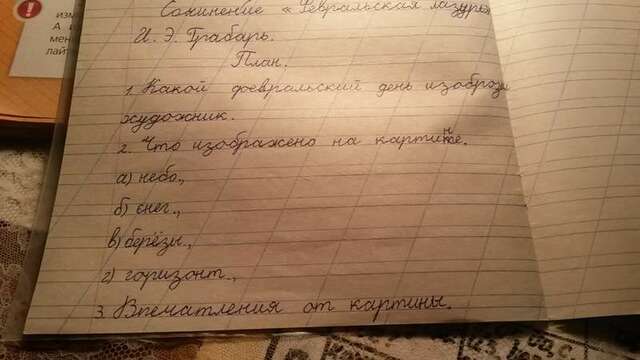 изм
А и
мен
лайт
Сочинение «Февральская лазурь»
И. Э. Грабарь.
План.
1. Какой февральский день изобрази
художник.
2. Что изображено на картинне.
а) небо.,
б) снег.,
в) берёзы.,
г) горизонт.,
3. Впечатления от картины.